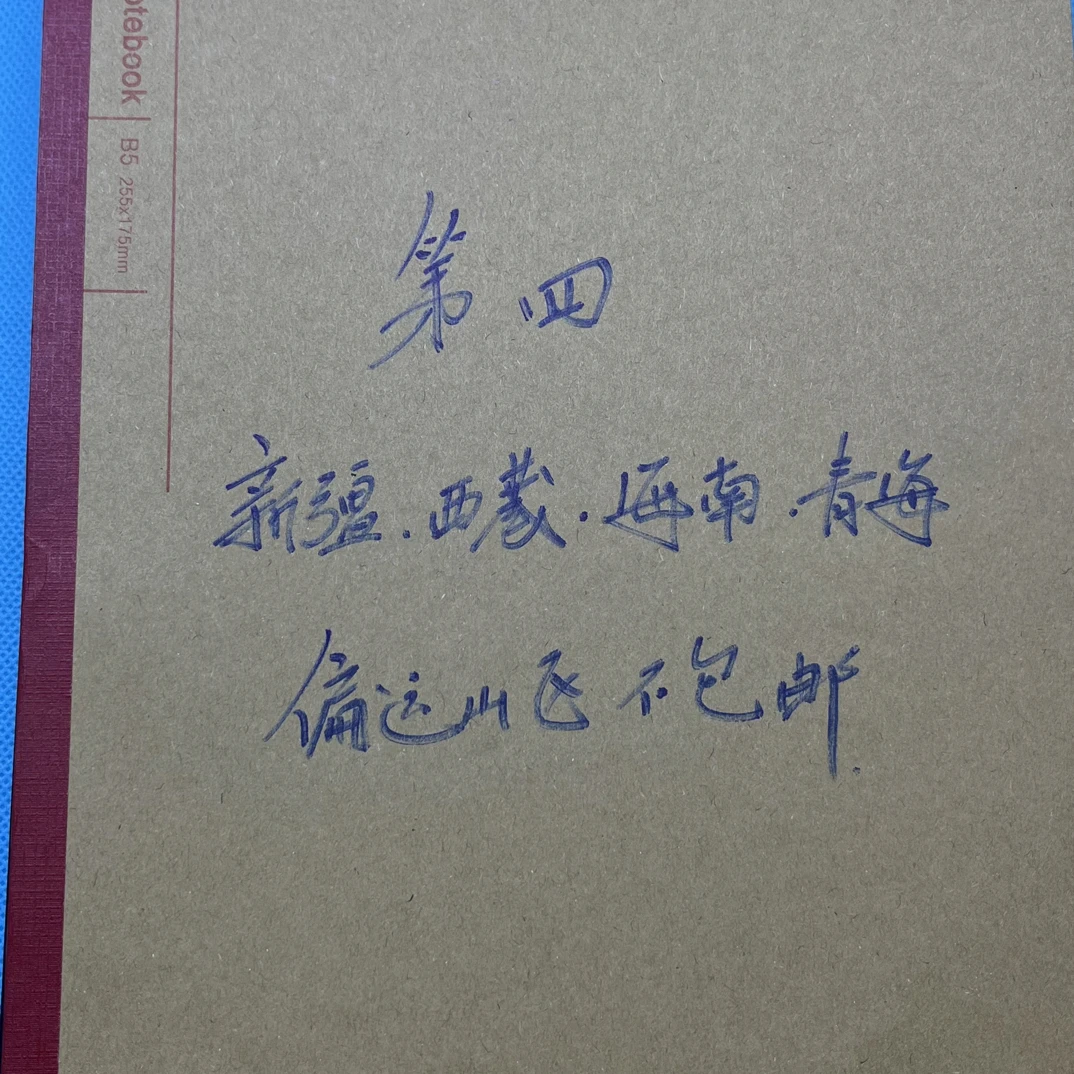 otebook
B5 255x175mm
第四
新疆.西蒙.海南.青海
偏远山区不包邮.